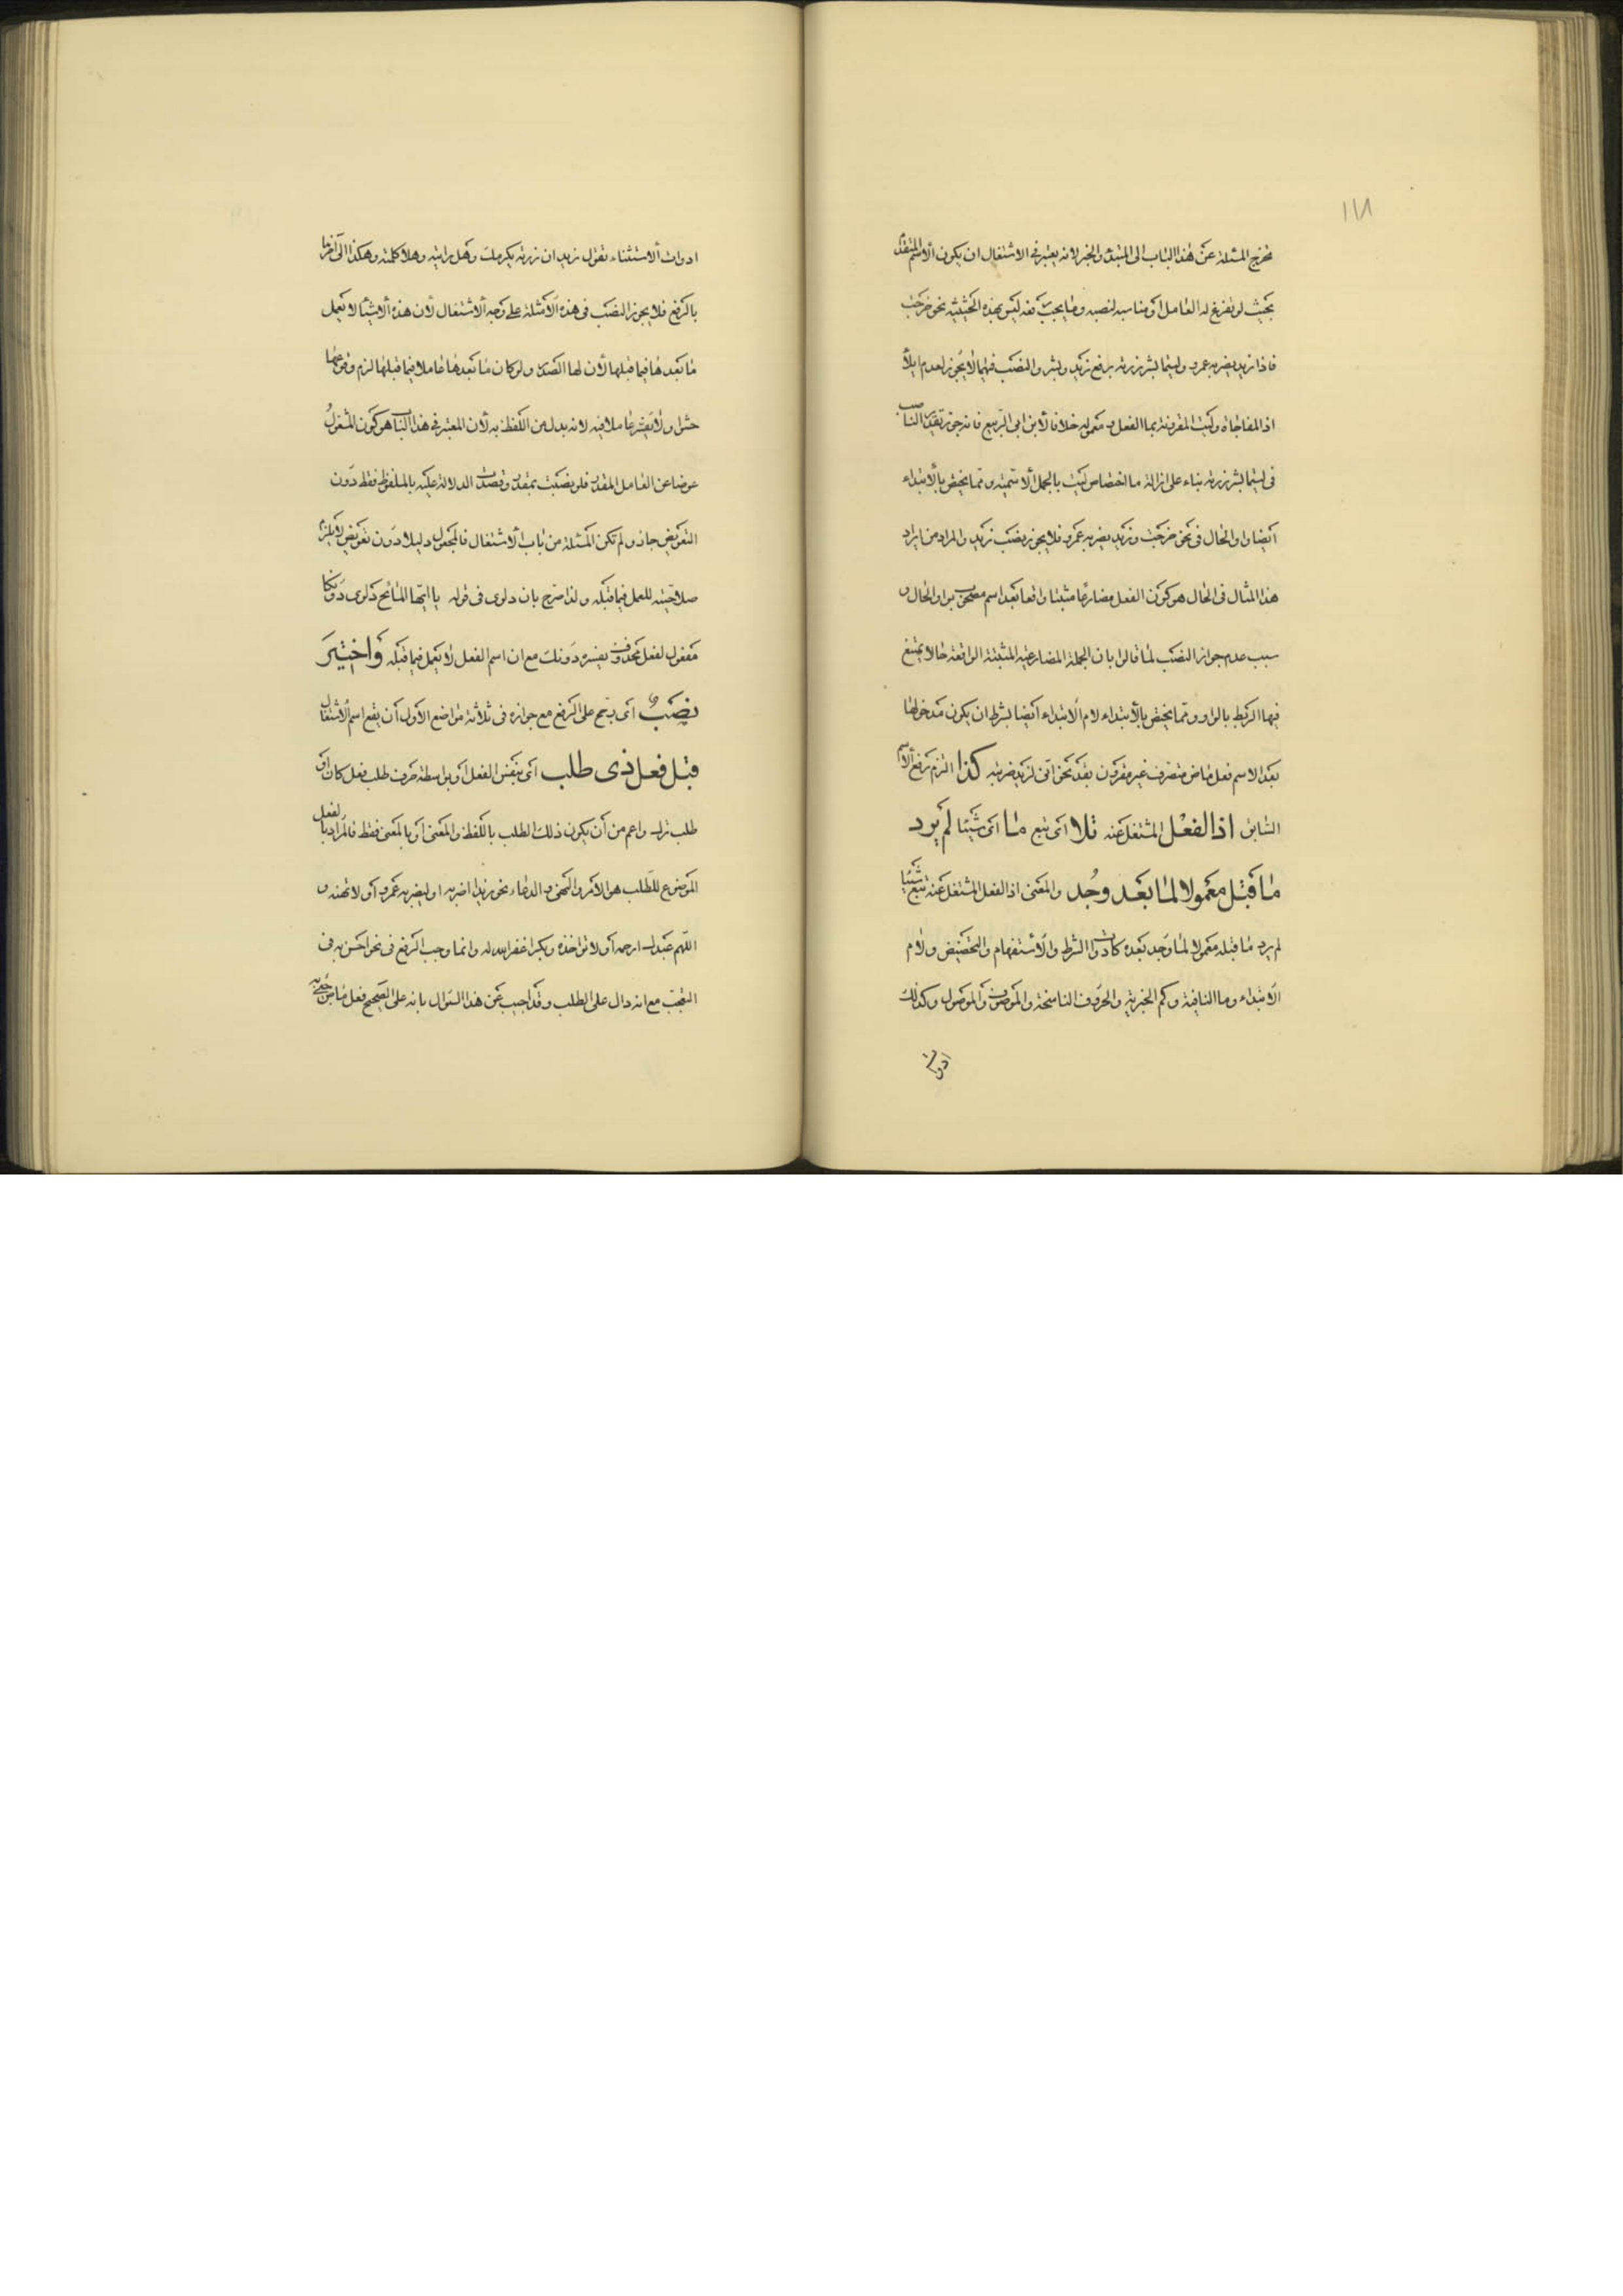 ١١٨
تخرج المسئلة عن هذا الباب الى المبتدأ والخبر لانه يعتبر في الاشتغال ان يكون الاسم المتقدم
بحيث لو تفرغ له العامل او مناسبه لنصبه وما يجب رفعه ليس بهذه الحيثية نحو خرجت
فاذا زيد يضربه عمرو وليتما بشر زرته برفع زيد وبشر والنصب فيهما لا يجوز لعدم ايلاء
اذا المفاجاة وليت المقرونة بما الفعل و معموله خلافا لابن ابى الربيع فانه جوز تقدير الناصب
فى ليتما بشر زرته بناء على ازالة ما اختصاص ليت بالجمل الاسمية ومما يختص بالابتداء
ايضا واو الحال فى نحو خرجت وزيد يضربه عمرو فلا يجوز نصب زيد والمراد من ايراد
هذا المثال فى الحال هو كون الفعل مضارعا مثبتا واقعا بعد اسم مصحوب بواو الحال و
سبب عدم جواز النصب لما قالوا بان الجملة المضارعية المثبتة الواقعة حالا يمتنع
فيها الربط بالواو ومما يختص بالابتداء لام الابتداء ايضا بشرط ان يكون مدخولها
بعد الاسم فعل ماض متصرف غير مقرون بقد نحو انى لزيد ضربته كذا التزم رفع الاسم
السابق اذا الفعل المشتغل عنه تلا اى تبع ما اى شيئا لم يرد
ما قبل معمولا لما بعد وجد والمعنى اذا الفعل المشتغل عنه تبع شيئا
لم يرد ما قبله معمولا لما وجد بعده كادوات الشرط والاستفهام والتحضيض ولام
الابتداء وما النافية وكم الخبرية والحروف الناسخة والموصوف والموصول وكذلك
ادوات
ادوات الاستثناء تقول زيد ان زرته يكرمك وهل رايته وهلا كلمته وهكذا الى آخرها
بالرفع فلا يجوز النصب فى هذه الامثلة على وجه الاشتغال لان هذه الاشيا لا يعمل
ما بعدها فيما قبلها لان لها الصدر ولو كان ما بعدها عاملا فيما قبلها لزم وقوعها
حشوا ولا يفسر عاملا فيه لانه بدل من اللفظ به لان المعتبر فى هذا الباب هو كون المشغول
عوضا عن العامل المقدر فلو نصبت بمقدر وقصدت الدلالة عليه بالملفوظ فقط دون
التعويض جاز ولم تكن المسئلة من باب الاشتغال فالمجعول دليلا دون تعويض لا يلزم
صلاحيته للعمل فيما قبله ولذا صرح بان دلوى فى قوله يا ايها المائح دلوى دونكا
مفعول لفعل محذوف يفسره دونك مع ان اسم الفعل لا يعمل فيما قبله واختير
نصب اى رجح على الرفع مع جوازه فى ثلاثة مواضع الاول ان يقع اسم الاشتغال
قبل فعل ذى طلب اى بنفس الفعل او بواسطة حرف طلب فعل كان او
طلب ترك واعم من ان يكون ذلك الطلب باللفظ والمعنى او بالمعنى فقط فالمراد بالفعل
الموضوع للطلب هو الامر والنهى و الدعاء نحو زيدا اضربه او ليضربه عمرو او لا تهنه و
اللهم عبدك ارحمه او لا تؤاخذه وبكرا غفر الله له وانما وجب الرفع فى نحو احسن به فى
التعجب مع انه دال على الطلب وقد اجيب عن هذا السؤال بانه على الصحيح فعل ماض